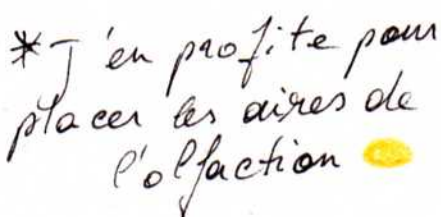 * J'en profite pour
placer les aires de
l'olfaction